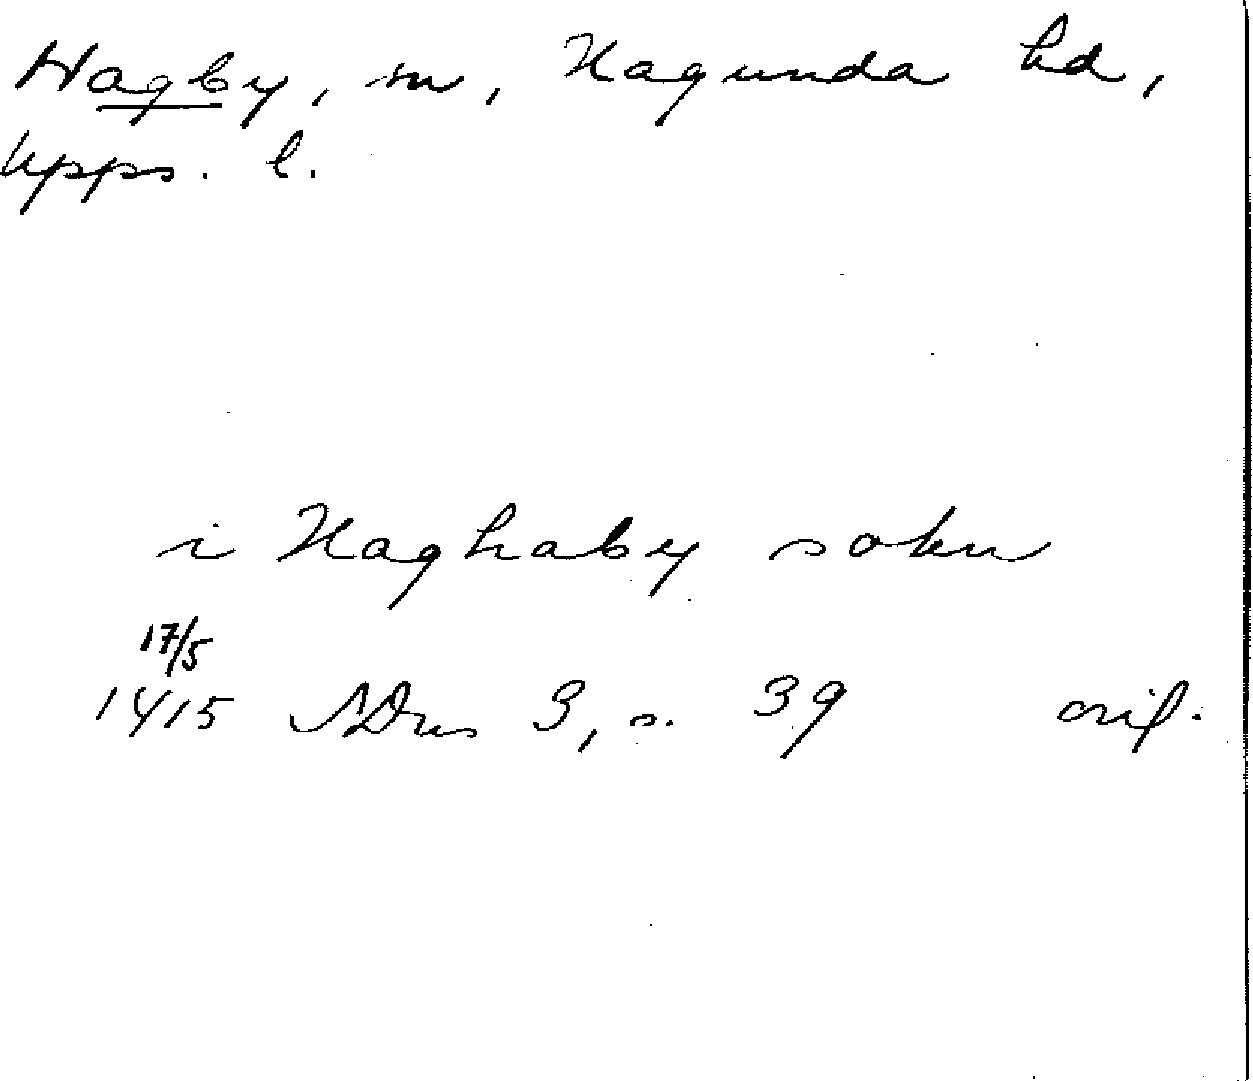 Hagby, sn, Hagunda hd,
Upps. l.
i Haghaby sokn
17/5
1415 SDns 3, s. 39 orig.